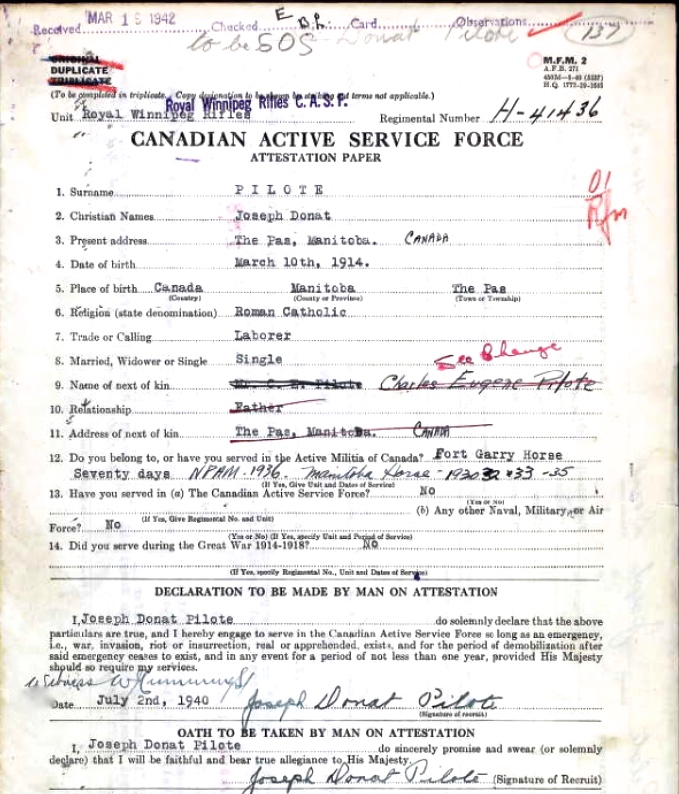 Received MAR 16 1942 Checked E Card Observations
to be SOS Donat Pilote 137
ORIGINAL
DUPLICATE
TRIPLICATE
M.F.M. 2
A.F.B. 271
H.Q. 1772-39-1645
(To be completed in triplicate. Copy designation to be shown by striking out terms not applicable.)
Royal Winnipeg Rifles C.A.S.F.
Unit Royal Winnipeg Rifles Regimental Number H-41436
CANADIAN ACTIVE SERVICE FORCE
ATTESTATION PAPER
1. Surname PILOTE
01
Rfm
2. Christian Names Joseph Donat
3. Present address The Pas, Manitoba. CANADA
4. Date of birth March 10th, 1914.
5. Place of birth Canada Manitoba The Pas
(Country) (County or Province) (Town or Township)
6. Religion (state denomination) Roman Catholic
7. Trade or Calling Laborer
8. Married, Widower or Single Single
See Change
9. Name of next of kin Mr. C. E. Pilote Charles Eugene Pilote
10. Relationship Father
11. Address of next of kin The Pas, Manitoba. CANADA
12. Do you belong to, or have you served in the Active Militia of Canada? Fort Garry Horse
Seventy days NPAM-1936. Manitoba Horse - 1930 32 & 33 -35
(If Yes, Give Unit and Dates of Service)
13. Have you served in (a) The Canadian Active Service Force? No
(Yes or No)
(b) Any other Naval, Military or Air
(If Yes, Give Regimental No. and Unit)
Force? No
(Yes or No) (If Yes, specify Unit and Period of Service)
14. Did you serve during the Great War 1914-1918? No
(If Yes, specify Regimental No., Unit and Dates of Service)
DECLARATION TO BE MADE BY MAN ON ATTESTATION
I, Joseph Donat Pilote do solemnly declare that the above
particulars are true, and I hereby engage to serve in the Canadian Active Service Force so long as an emergency,
i.e., war, invasion, riot or insurrection, real or apprehended, exists, and for the period of demobilization after
said emergency ceases to exist, and in any event for a period of not less than one year, provided His Majesty
should so require my services.
Witness
Date July 2nd, 1940 Joseph Donat Pilote
(Signature of recruit)
OATH TO BE TAKEN BY MAN ON ATTESTATION
I, Joseph Donat Pilote do sincerely promise and swear (or solemnly
declare) that I will be faithful and bear true allegiance to His Majesty.
Joseph Donat Pilote (Signature of Recruit)